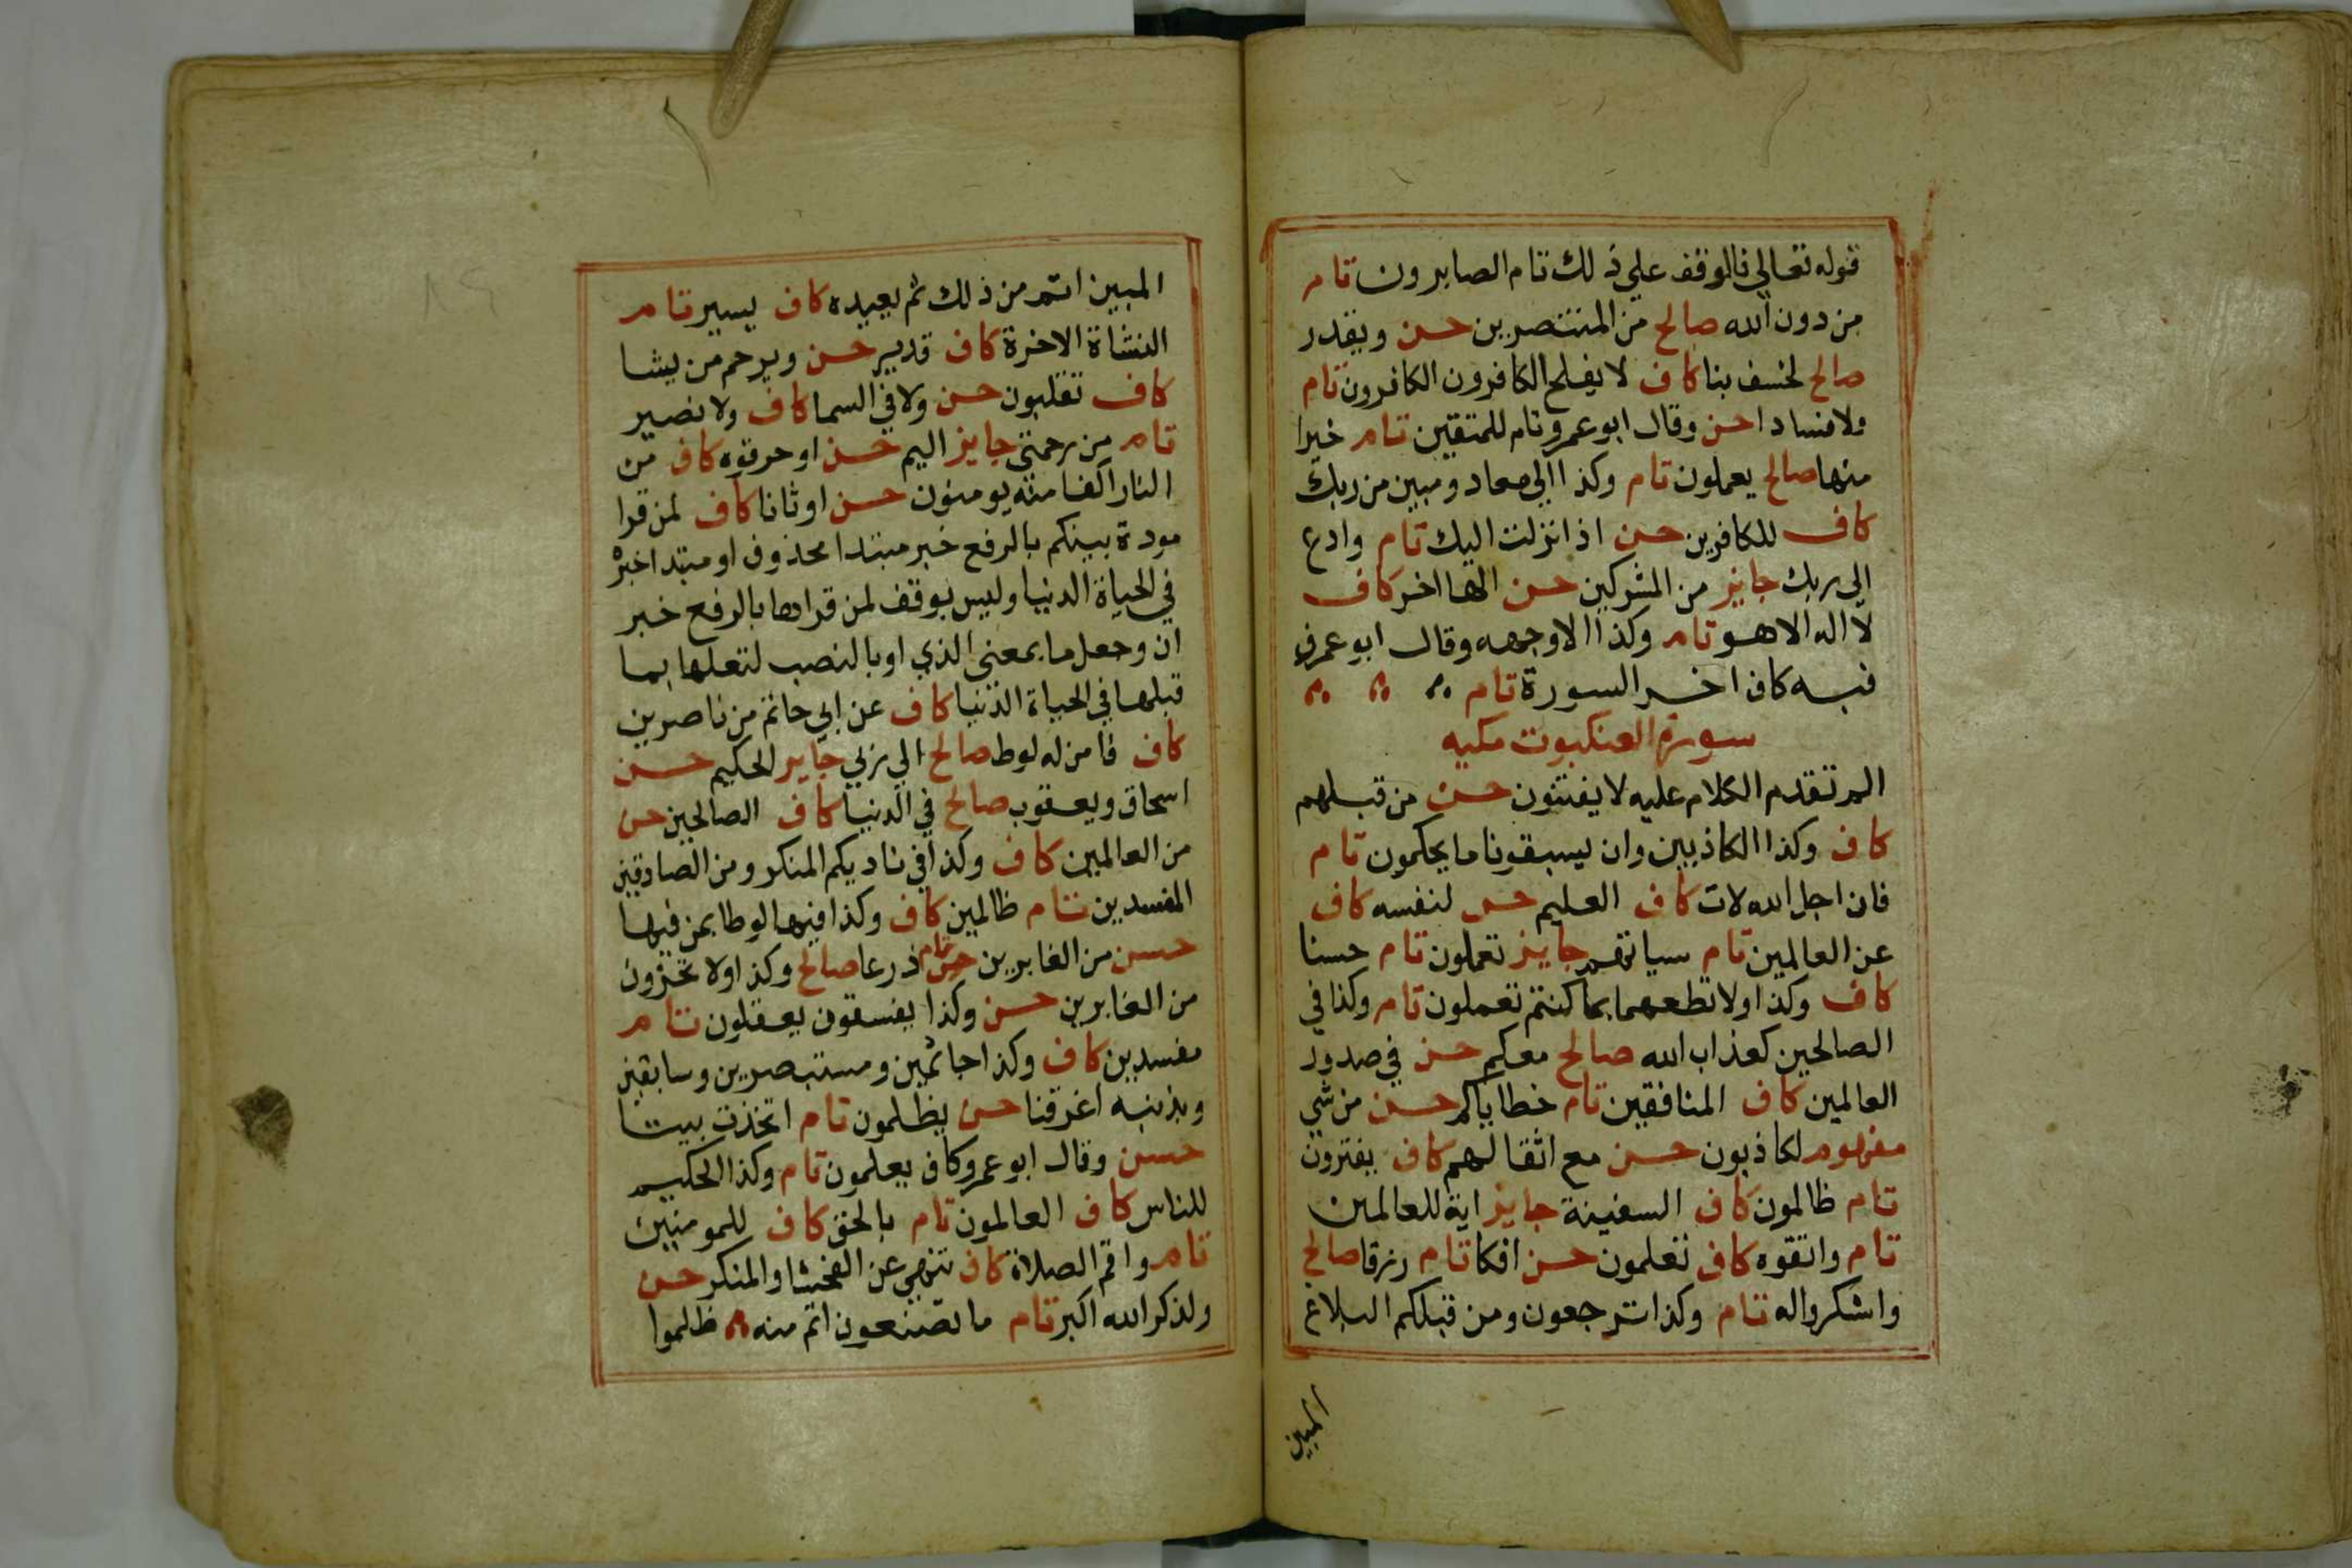 قوله تعالي فالوقف علي ذلك تام الصابرون تام
من دون الله صالح من المنتصرين حسن ويقدر
صالح لخسف بنا كاف لا يفلح الكافرون الكافرون تام
ولا فسادا حسن وقال ابو عمرو تام للمتقين تام خيرا
منها صالح يعملون تام وكذا الي معاد ومبين من ربك
كاف للكافرين حسن اذ انزلت اليك تام وادع
الى ربك جايز من المشركين حسن الها اخر كاف
لا اله الا هو تام وكذا الا وجهه وقال ابو عمرو
فيه كاف اخر السورة تام
سورة العنكبوت مكيه
الم تقدم الكلام عليه لا يفتنون حسن من قبلهم
كاف وكذا الكاذبين وان يسبقونا ما يحكمون تام
فان اجل الله لات كاف العليم حسن لنفسه كاف
عن العالمين تام سياتهم جايز تعملون تام حسنا
كاف وكذا ولا تطعهما بما كنتم تعملون تام وكذا في
الصالحين كعذاب الله صالح معكم حسن في صدور
العالمين كاف المنافقين تام خطاياكم حسن من شي
مفهوم لكاذبون حسن مع اثقالهم كاف يفترون
تام ظالمون كاف السفينة جايز اية للعالمين
تام واتقوه كاف تعلمون حسن افكا تام رزقا صالح
واشكروا له تام وكذا ترجعون ومن قبلكم البلاغ
المبين
المبين اتم من ذلك ثم يعيده كاف يسير تام
النشاة الاخرة كاف قدير حسن ويرحم من يشا
كاف تقلبون حسن ولا في السما كاف ولا نصير
تام من رحمتي جايز اليم حسن او حرقوه كاف من
النار اكفا منه يومنون حسن اوثانا كاف لمن قرا
مودة بينكم بالرفع خبر مبتدا محذوف او مبتدا خبره
في الحياة الدنيا وليس بوقف لمن قراها بالرفع خبر
ان وجعل ما بمعني الذي او بالنصب لتعلها بما
قبلها في الحياة الدنيا كاف عن ابي حاتم من ناصرين
كاف فامن له لوط صالح الي ربي جايز الحكيم حسن
اسحاق ويعقوب صالح في الدنيا كاف الصالحين حسن
من العالمين كاف وكذا في ناديكم المنكر ومن الصادقين
المفسدين تام ظالمين كاف وكذا فيها لوطا بمن فيها
حسن من الغابرين حسن تام ذرعا صالح وكذا ولا تحزون
من الغابرين حسن وكذا يفسقون يعقلون تام
مفسدين كاف وكذا جاثمين ومستبصرين وسابقين
وبذنبه اغرقنا حسن يظلمون تام اتخذت بيتا
حسن وقال ابو عمرو كاف يعلمون تام وكذا الحكيم
للناس كاف العالمون تام بالحق كاف للمومنين
تام واقم الصلاة كاف تنهي عن الفحشا والمنكر حسن
ولذكر الله اكبر تام ما تصنعون اتم منه ظلموا